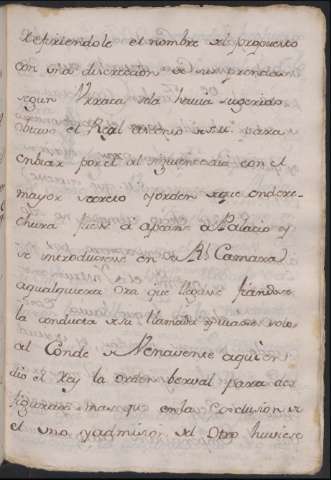 Refiriendole el nombre del propuesto
con una discrecion de sus prendas
segun Urraca la havia sugerido
obtuvo el Real para
enbiar por el al siguiente dia con el
mayor secreto y orden de que endere-
chura fuese a apearse a Palacio y
se introduxese en la Rl Camara
aqualquiera ora que llegase fiandose
la conducta de su llamada
al Conde de Benavente aquien
dio el Rey la orden berval para
mas que en la Conclusion de
el uno y admision del Otro huviese